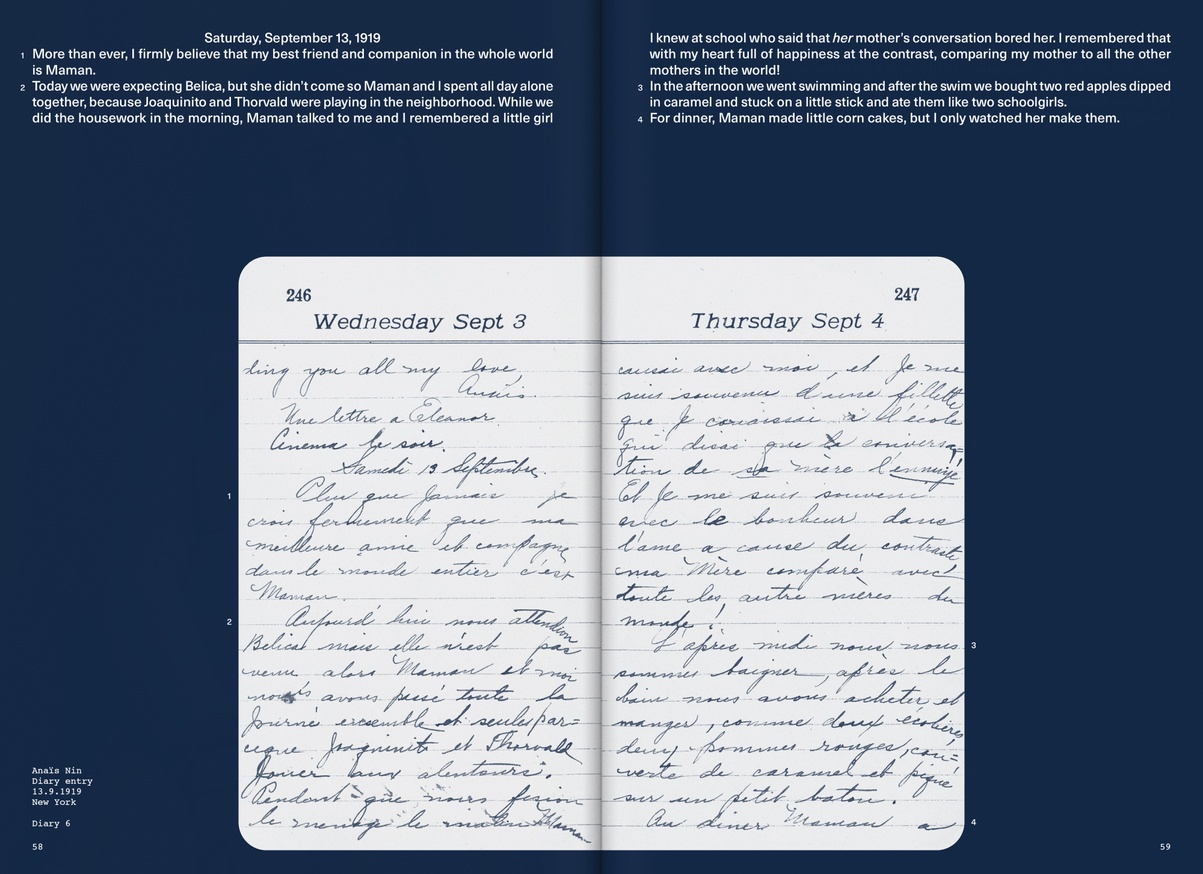 Saturday, September 13, 1919
1 More than ever, I firmly believe that my best friend and companion in the whole world
is Maman.
2 Today we were expecting Belica, but she didn't come so Maman and I spent all day alone
together, because Joaquinito and Thorvald were playing in the neighborhood. While we
did the housework in the morning, Maman talked to me and I remembered a little girl
I knew at school who said that her mother's conversation bored her. I remembered that
with my heart full of happiness at the contrast, comparing my mother to all the other
mothers in the world!
3 In the afternoon we went swimming and after the swim we bought two red apples dipped
in caramel and stuck on a little stick and ate them like two schoolgirls.
4 For dinner, Maman made little corn cakes, but I only watched her make them.
246
Wednesday Sept 3
ding you all my love,
Anaïs.
Une lettre a Eleanor.
Cinema le soir.
Samedi 13 Septembre.
1 Plus que Jamais je
crois fermement que ma
meilleure amie et compagne
dans le monde entier c'est
Maman.
2 Aujourd'hui nous attendion
Belica mais elle n'est pas
venu alors Maman et moi
nous avons passé toute la
Journé ensemble et seules par=
ceque Joaquinito et Thorvald
Jouer aux alentours.
Pendant que nous fesion
le menage le matin Maman
247
Thursday Sept 4
causai avec moi, et Je me
suis souvenu d'une fillette
que Je conaissai à l'école
qui disai que la conversa=
tion de sa mère l'ennuyé!
Et Je me suis souvenu
avec le bonheur dans
l'ame a cause du contraste
ma Mère comparé avec
toute les autre mères du
monde!
3 L'après midi nous nous
sommes baigner, après le
bain nous avons acheter et
manger, comme deux écolières,
deux pommes rouges, cou=
verte de caramel et piqué
sur un petit baton.
4 Au diner Maman a
Anaïs Nin
Diary entry
13.9.1919
New York
Diary 6
58
59